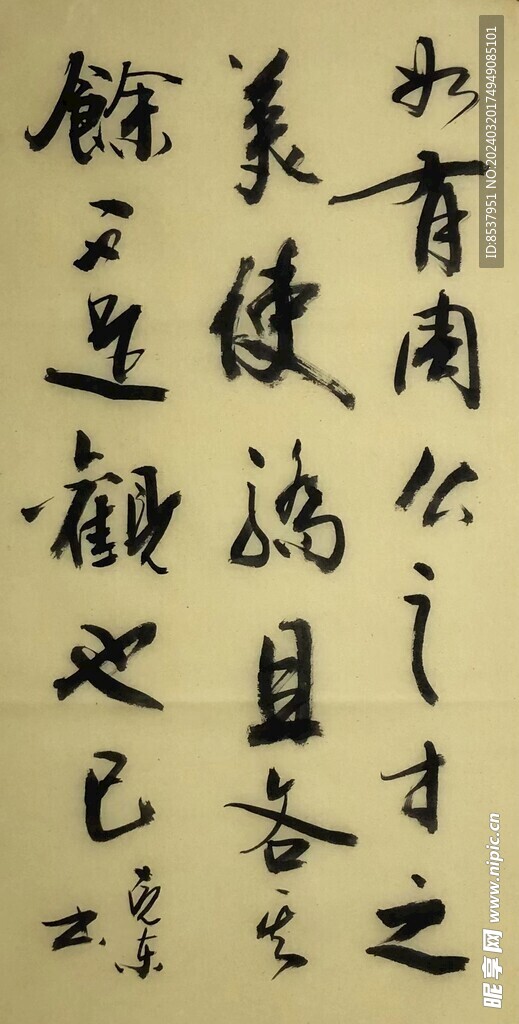 如有周公之才之
美使骄且各其
餘不足觀也已
晓东
书
ID:8537951 NO:20240320174949085101
昵享网 www.nipic.cn